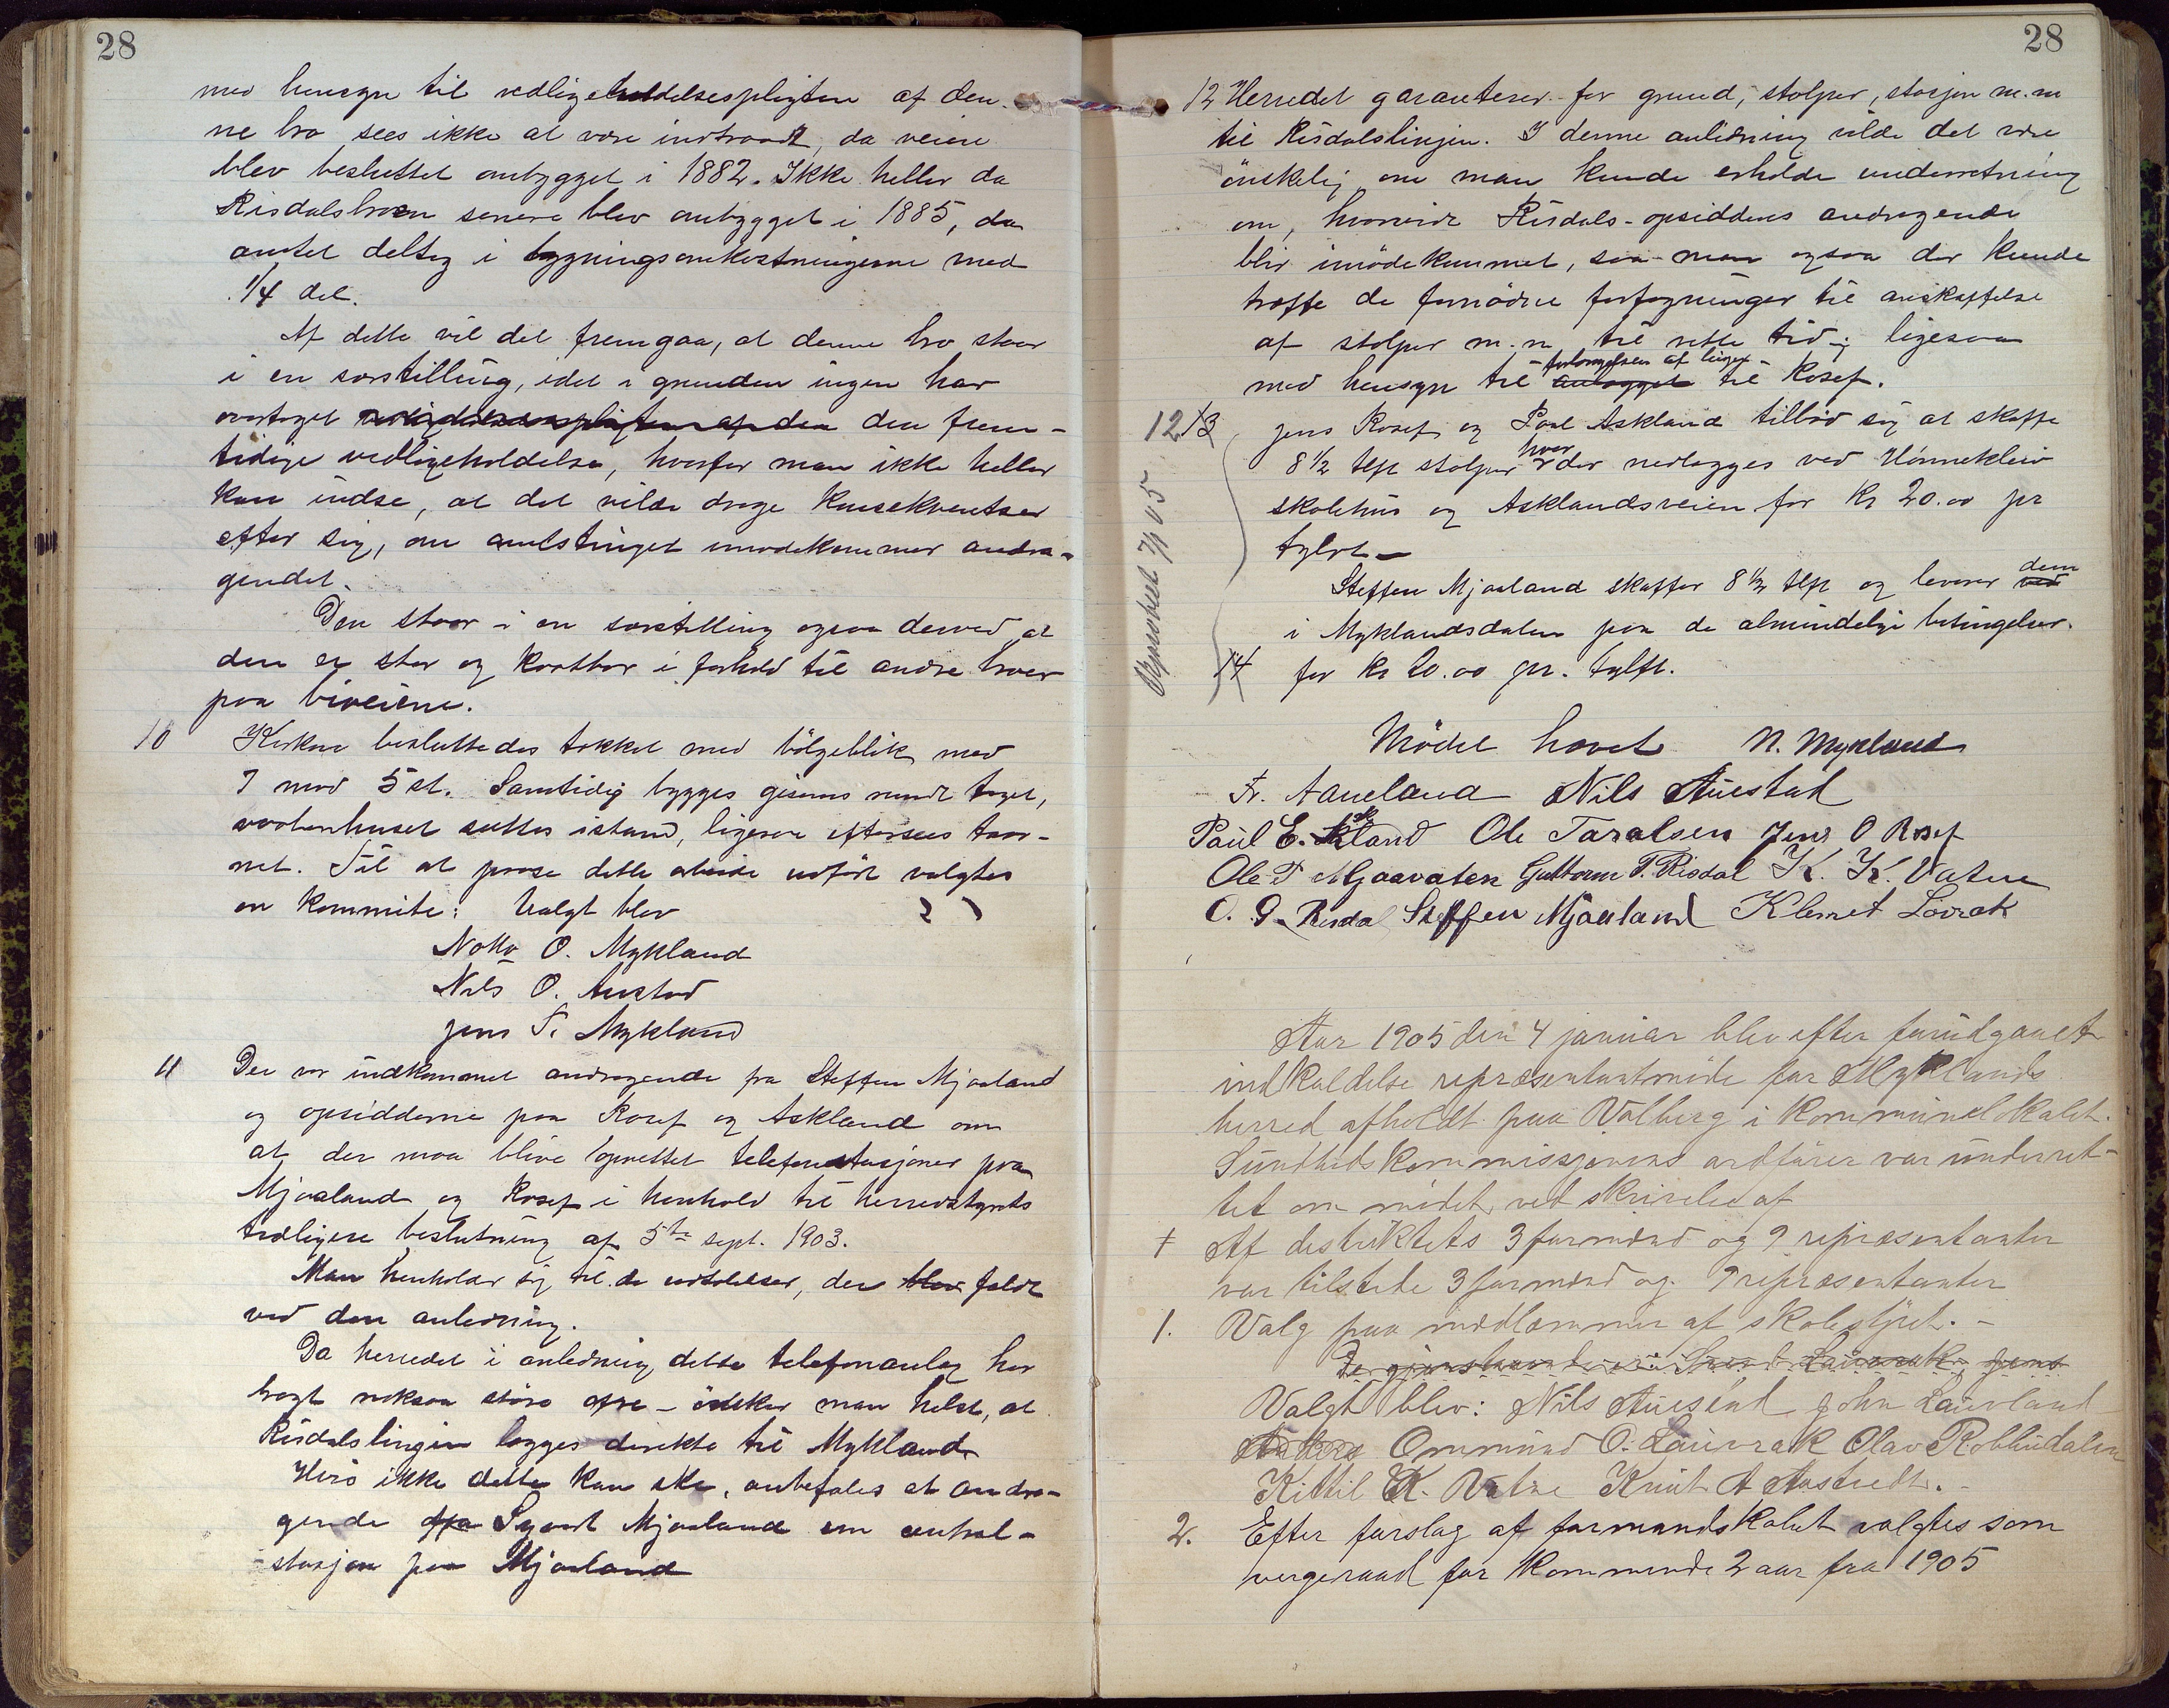 28
med hensyn til vedligeholdelsespligten af den-
ne bro sees ikke at være indtraadt, da veiene
blev besluttet ombygget i 1882. Ikke heller da
Risdalsbroen senere blev ombygget i 1885, da
amtet deltog i bygningsomkostningerne med
1/4 del.
Af dette vil det fremgaa, at denne bro staar
i en særstilling, idet i grunden ingen har
overtaget vedligeholdelsespligten af den den frem-
tidige vedligeholdelse, hvorfor man ikke heller
kan indse, at det vilde drage konsekventser
efter sig, om amtstinget imødekommer andra-
gendet.
Den staar i en særstilling ogsaa derved at
den er stor og kostbar i forhold til andre broer
paa biveiene.
10 Kirken besluttedes tækket med bölgeblik med
7 mod 5 st. Samtidig bygges gesims rundt taget,
vaabenhuset sættes istand, ligesaa eftersees taar-
net. Til at faa dette arbeide udført valgtes
en kommite: Valgt blev
O. Mykland
Nils O. Austad
Jens T. Mykland
11 Der var indkommet andragende fra Steffen Mjaaland
og opsidderne paa Rosef og Askland om
at der maa blive oprettet telefonstasjoner paa
Mjaaland og Rosef i henhold til herredstyrets
tidligere beslutning af 5te sept. 1903.
Man henholder sig til de udtalelser, der blev faldt
ved den anledning.
Da herredet i anledning dette telefonanlæg har
bragt noksaa store ofre - önsker man helst, at
Risdalslinjen lægges direkte til Mykland.
Hvis ikke dette kan ske, anbefales et andra-
gende fra Sjovat Mjaaland om central-
stasjon paa Mjaaland
28
12 Herredet garanterer for grund, stolper, stasjon m.m
til Risdalslinjen. I denne anledning vilde det være
önskelig om man kunde erholde underretning
om, hvorvidt Risdals-opsiddernes andragende
blir imödekommet, saa man ogsaa der kunde
træffe de fornödne forføyninger til anskaffelse
af stolper m.m. til rette tid; ligesaa
med hensyn til anlægget forlængelsen af linjen til Rosef.
12 13 Jens Rosef og Paal Askland tilbød sig at skaffe
8 1/2 tlft stolper hver der nedlægges ved Hönnekleiv
skolehus og Asklandsveien for kr 20.00 pr
tylvt -
Steffen Mjaaland skaffer 8 1/2 tlft og leverer ved dem
i Myklandsdalen paa de almindelige betingelser.
14 for kr 20.00 pr. tylft.
Mödet hævet N. Mykland
Fr. Aaneland Nils Austad
Paul E. Askland Ole Taralsen Jens O Rosef
Ole T Mjaavaten Guttorm T. Risdal K. K. Vatne
O. G. Risdal Steffen Mjaaland Klemet Lovrak
Aar 1905 den 4 januar blev efter forudgaaet
indkaldelse repræsentantmöde for Myklands
herred afholdt paa Valberg i kommunelokalet.
Sundhedskommissjonens ordförer var underret-
tet om mödet ved skrivelse af
+ Af distriktets 3 formænd og 9 repræsentanter
var tilstede 3 formænd og 9 repræsentanter
1. Valg paa medlemmer af skolestyret. -
Valgt blev: Nils Austad John Lauvland
Anders Ommund O. Lauvrak Olav Robbudalen
Kittil K. Vatne Knut A Aastvedt. -
2. Efter forslag af formandskabet valgtes som
vergeraad for kommende 2 aar fra 1905